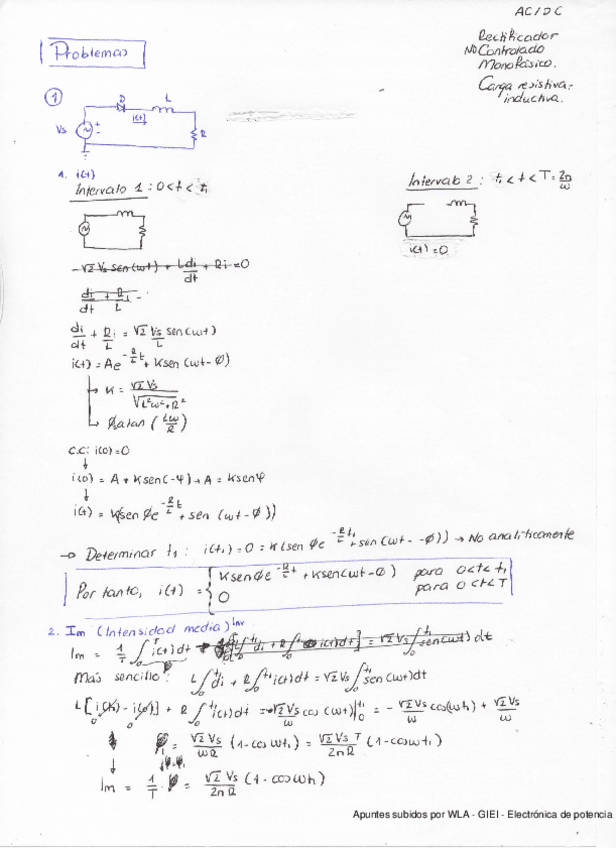 AC/DC
Rectificador
No Controlado
Monofásico.
Carga resistiva-
inductiva.
Problemas
1
D L
Vs + - i(t) R
1. i(t)
Intervalo 1 : 0<t<t₁
Intervalo 2 : t₁<t<T=2π/ω
i(t)=0
-√2 Vs sen(ωt) + L di/dt + Ri=0
di/dt + R/L i =
di/dt + R/L i = √2 Vs/L sen(ωt)
i(t) = Ae^(-R/L t) + K sen(ωt-Ø)
K = √2 Vs/√(L²ω²+R²)
Ø atan (Lω/R)
C.C: i(0)=0
i(0) = A + K sen(-φ) → A = K senφ
i(t) = K(sen Ø e^(-R/L t) + sen (ωt-Ø))
→ Determinar t₁ : i(t₁) = 0 = K(sen Ø e^(-R/L t₁) + sen(ωt - Ø)) → No analíticamente
Por tanto, i(t) = { K senØ e^(-R/L t) + K sen(ωt-Ø) para 0<t<t₁
0 para 0<t<T
2. Im (Intensidad media)
Im = 1/T ∫₀ᵀ i(t)dt
Mas sencillo: L∫₀^t₁ di + R∫₀^t₁ i(t)dt = √2 Vs ∫₀^t₁ sen(ωt)dt
L[i(t₁) - i(0)] + R ∫₀^t₁ i(t)dt = -√2 Vs/ω cos(ωt)|₀^t₁ = -√2 Vs/ω cos(ωt₁) + √2 Vs/ω
= √2 Vs/ωR (1-cos ωt₁) = √2 Vs T/2πR (1-cos ωt₁)
Im = 1/T · = √2 Vs/2πR (1-cos ωt₁)
Apuntes subidos por WLA - GIEI - Electrónica de potencia